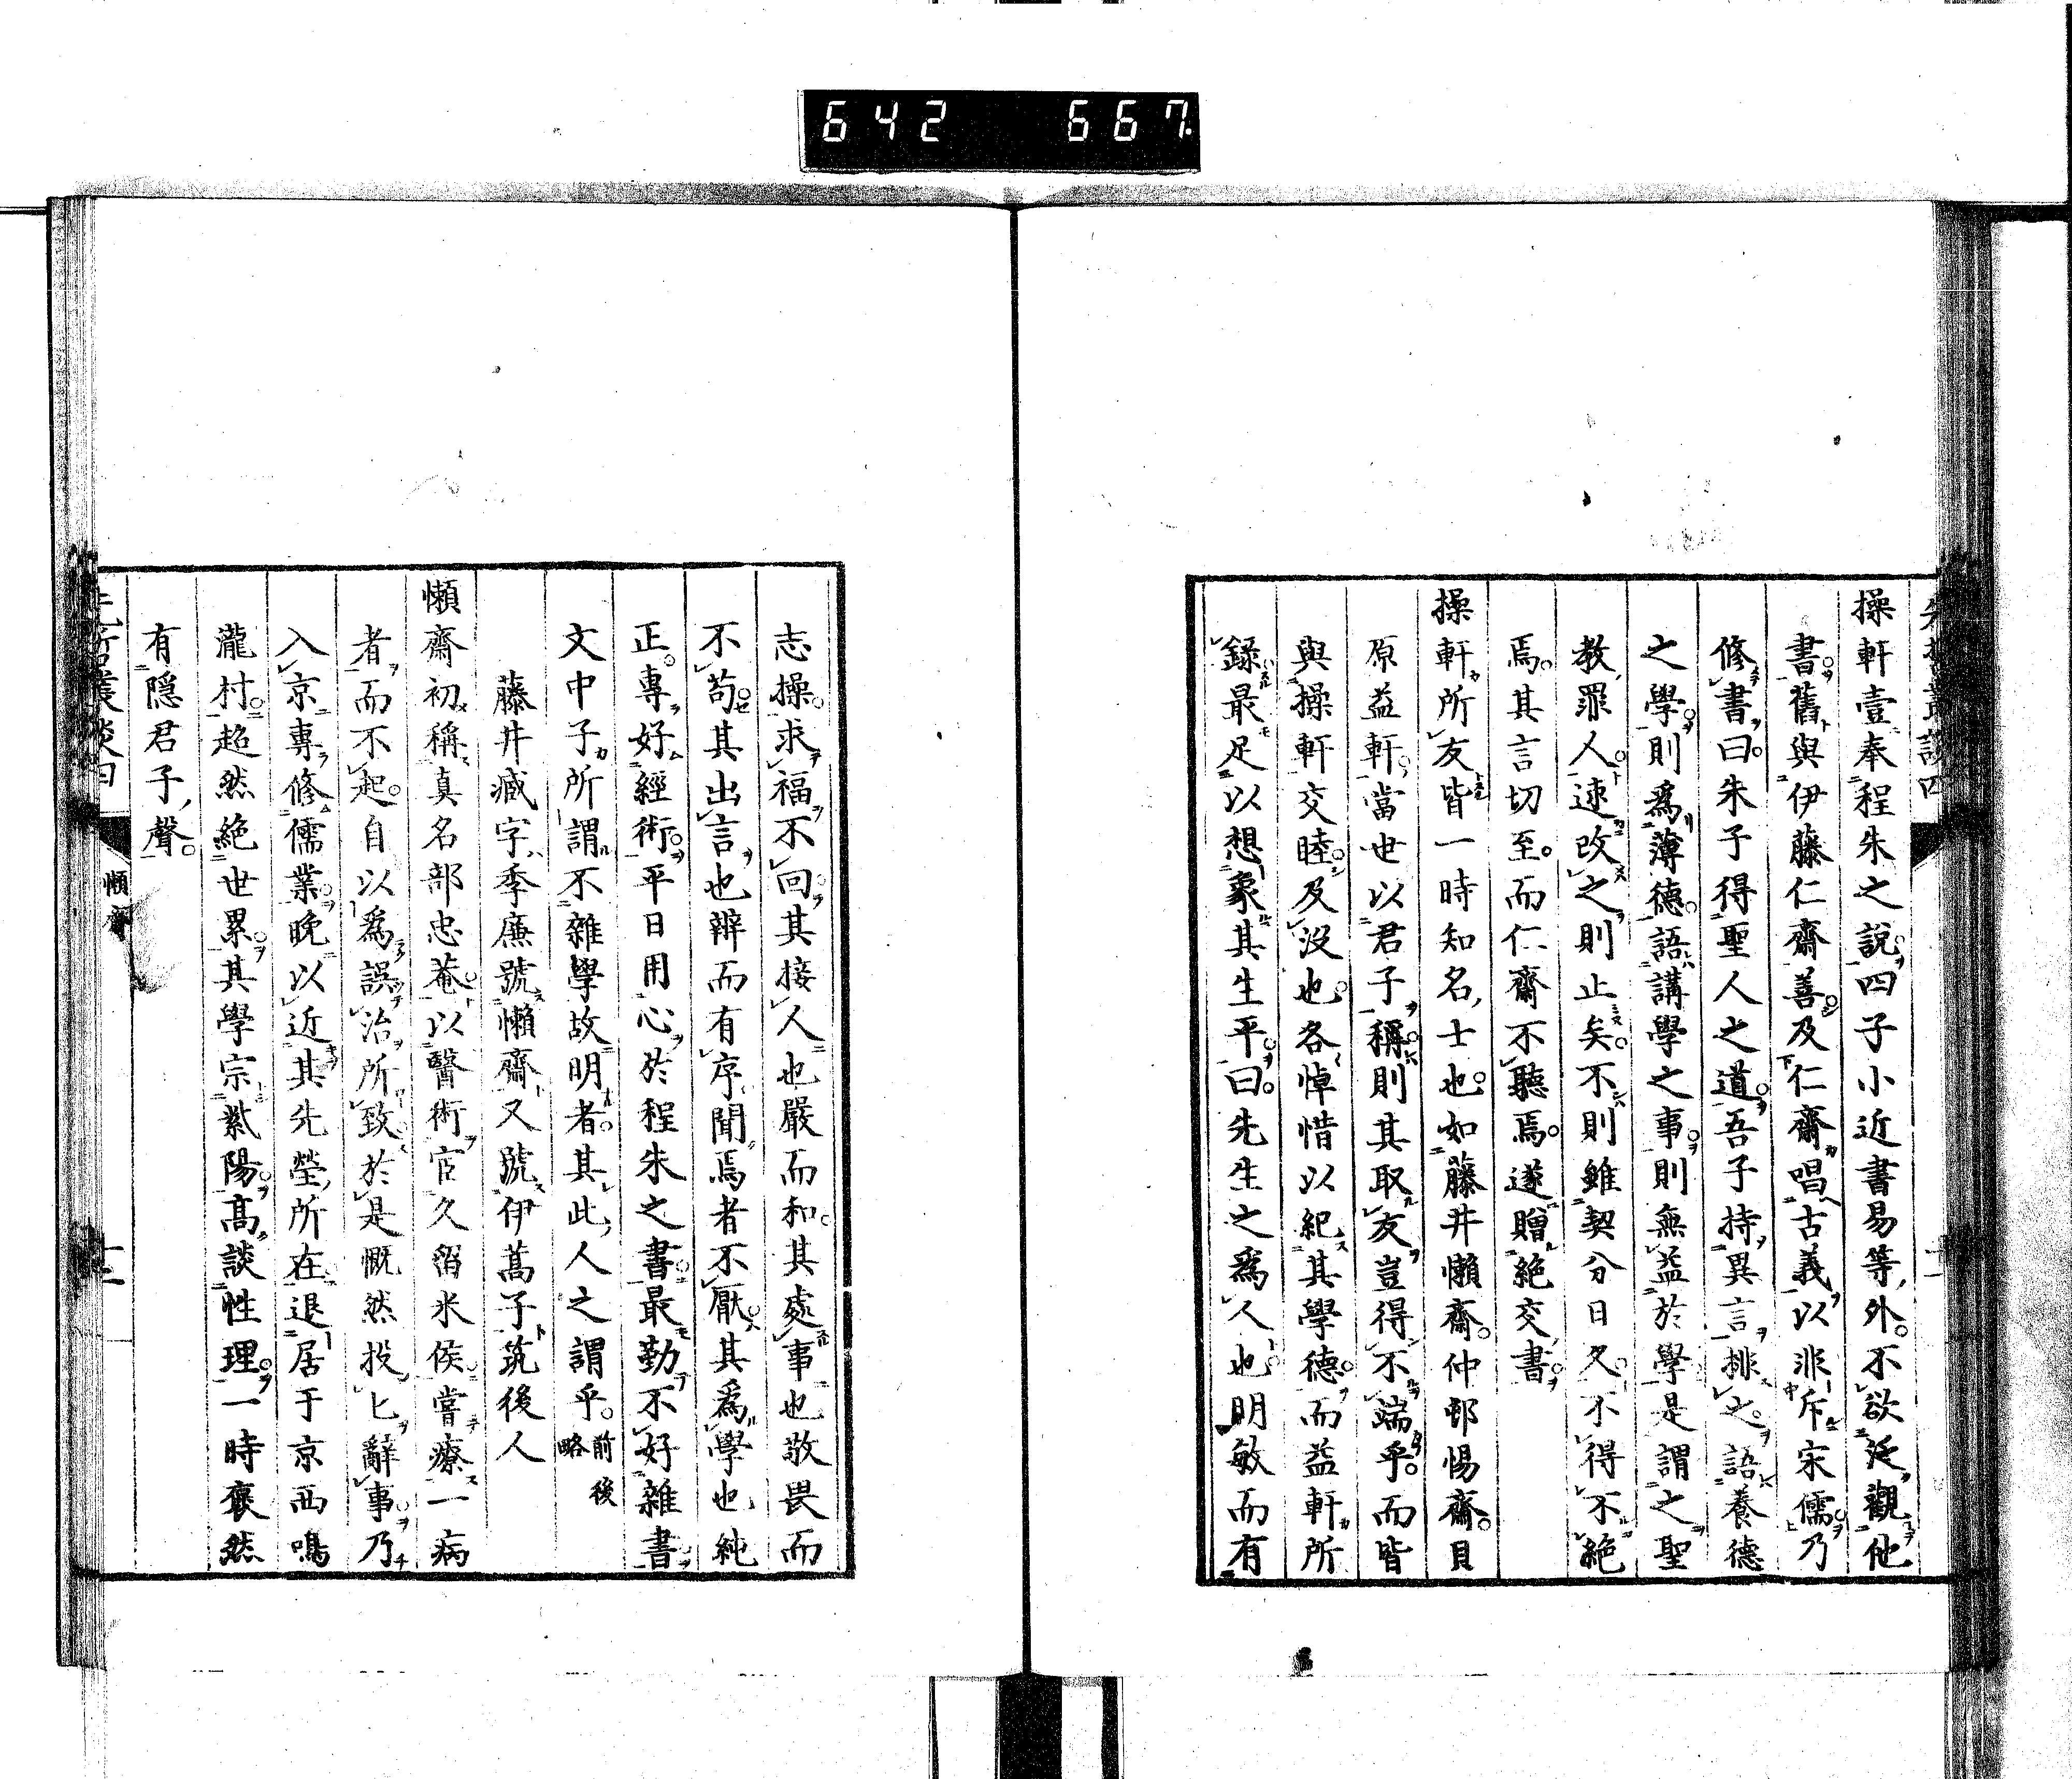 642 667
先哲叢談四
操軒壹奉程朱之說四子小近書易等外不欲廷觀他
書舊與伊藤仁齋善及仁齋唱古義以非斥宋儒乃
修書曰朱子得聖人之道吾子持異言排之語養德
之學則爲薄德語講學之事則無益於學是謂之聖
教罪人速改之則止矣不則雖契分日久不得不絕
焉其言切至而仁齋不聽焉遂贈絕交書
操軒所友皆一時知名士也如藤井懶齋仲邨惕齋貝
原益軒當世以君子稱則其取友豈得不端乎而皆
與操軒交睦及沒也各悼惜以紀其學德而益軒所
錄最足以想象其生平曰先生之爲人也明敏而有
志操求福不回其接人也嚴而和其處事也敬畏而
不苟其出言也辨而有序聞焉者不厭其爲學也純
正專好經術平日用心於程朱之書最勤不好雜書
文中子所謂不雜學故明者其此人之謂乎前後略
藤井臧字季廉號懶齋又號伊蒿子筑後人
懶齋初稱真名部忠菴以醫術宦久留米侯嘗療一病
者而不起自以爲誤治所致於是慨然投匕辭事乃
入京專修儒業晚以近其先塋所在退居于京西鳴
瀧村超然絕世累其學宗紫陽高談性理一時褒然
有隱君子聲
先哲叢談四
懶齋
十二